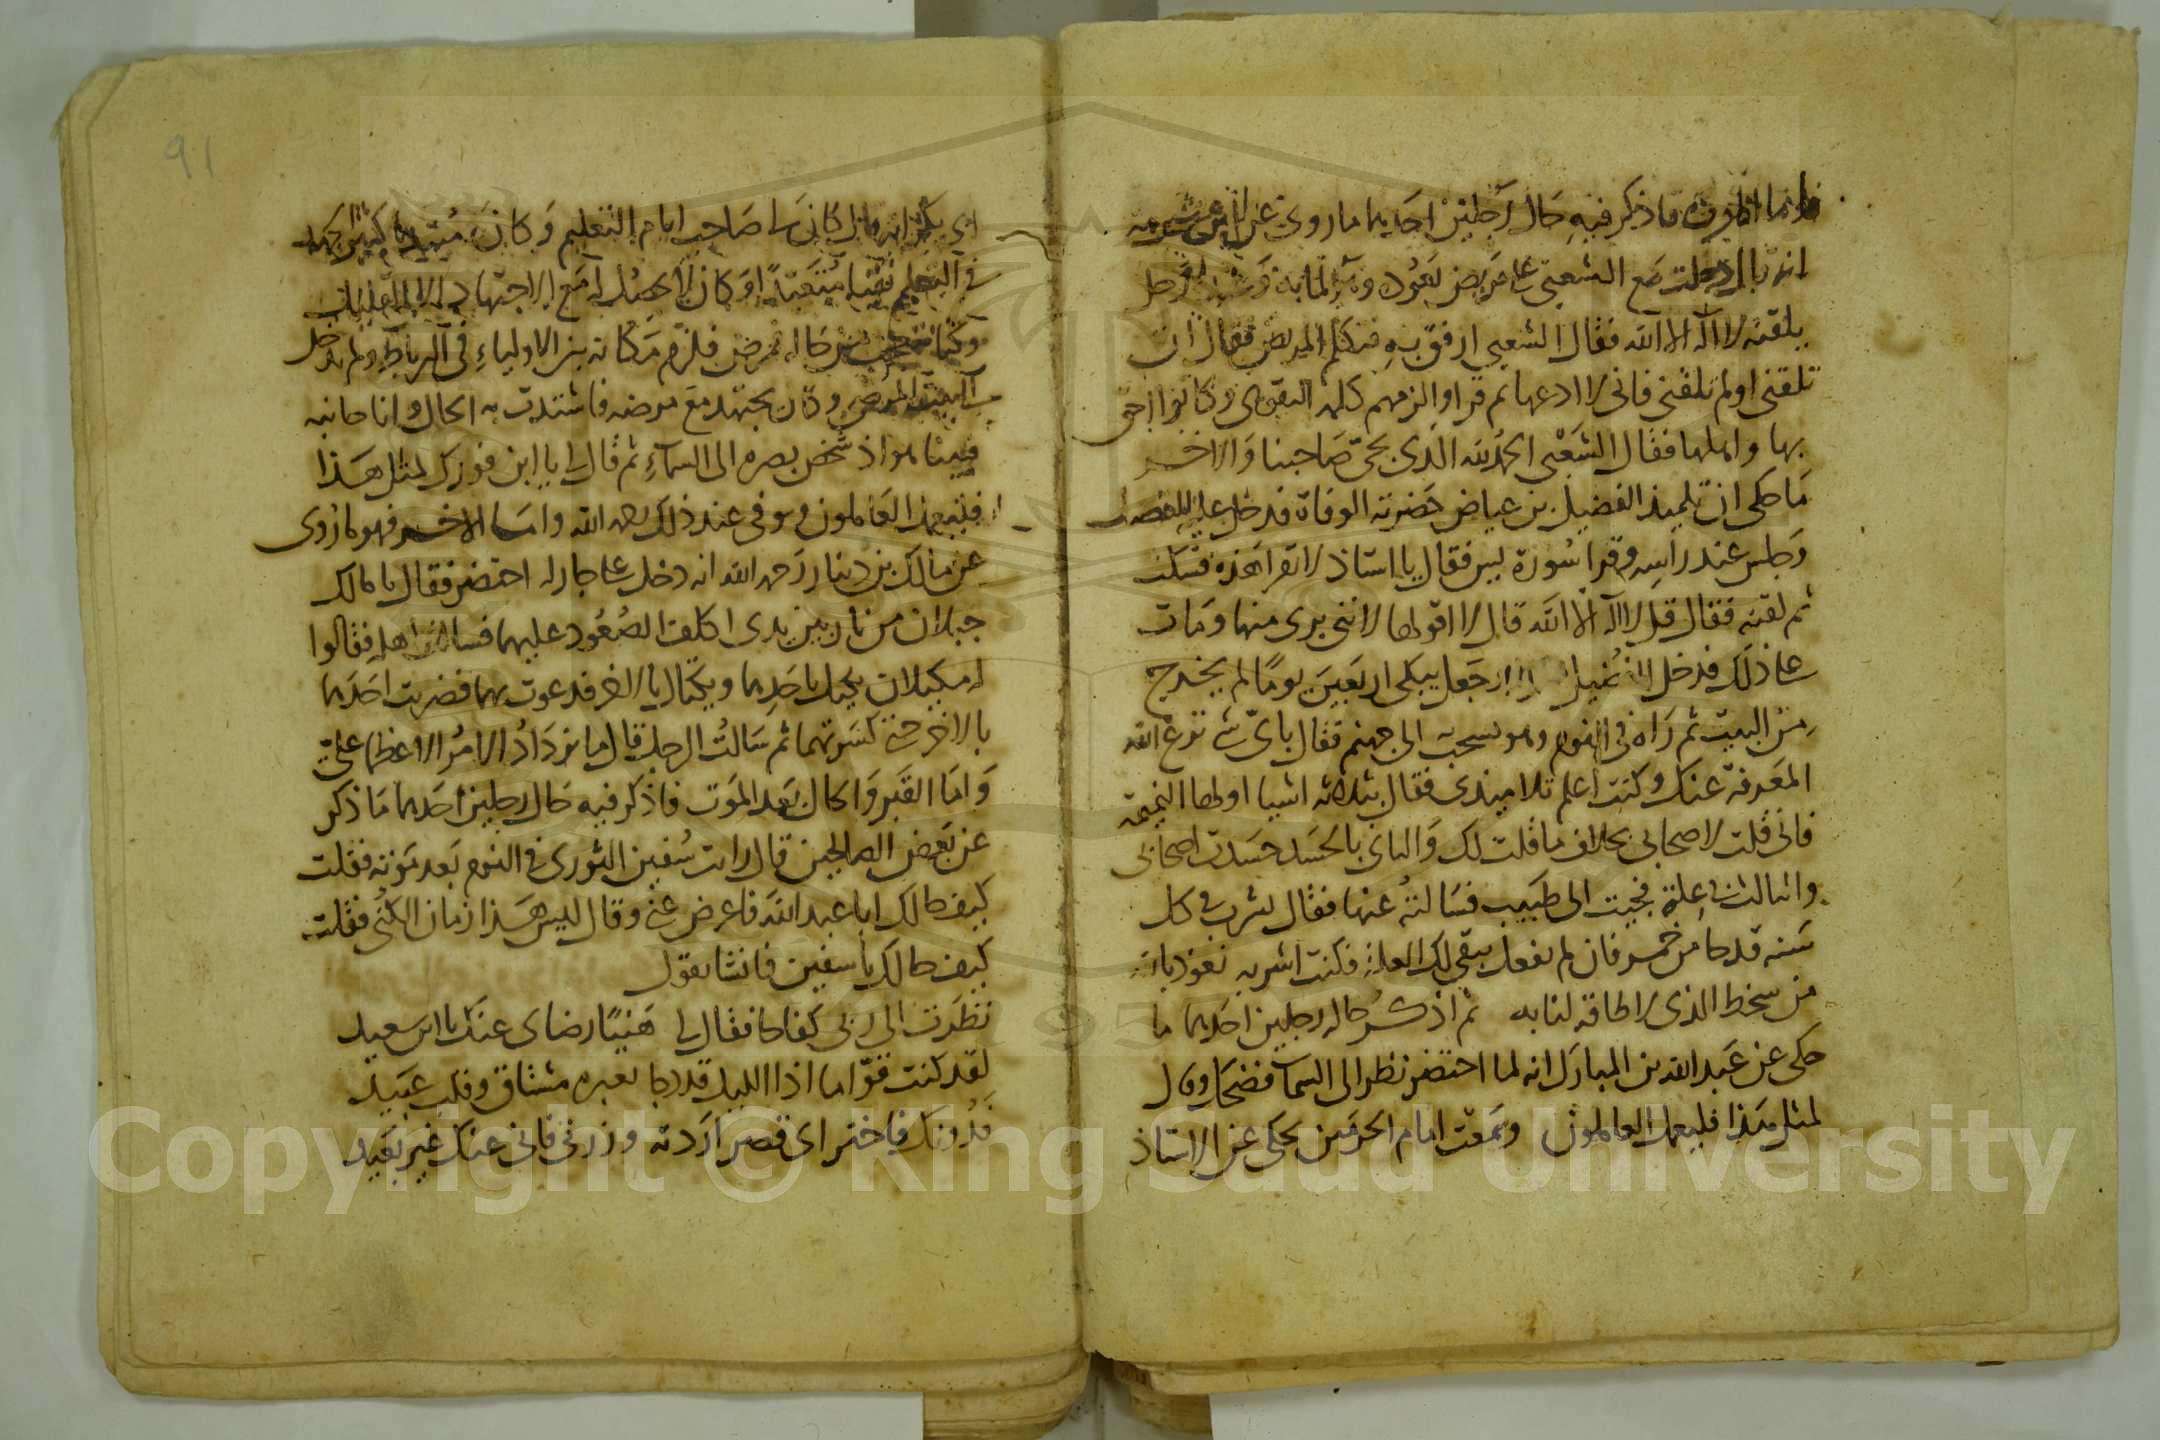 فاما الموت فاذكر فيه حال رجلين احديهما ما روى عن ابن شبرمة
انه قال دخلت مع الشعبي على مريض نعوده ورجل
يلقنه لا اله الا الله فقال الشعبي ارفق به فتكلم المريض فقال ان
تلقنى اولم تلقنى فانى لا ادعها ثم قرا والزمهم كلمة التقوى وكانوا احق
بها واهلها فقال الشعبى الحمد لله الذى نجى صاحبنا والاخر
ما حكى ان تلميذ الفضيل بن عياض حضرته الوفاة فدخل عليه الفضيل
وجلس عند راسه وقرا سورة يس فقال يا استاذ لا تقرا هذه فسكت
ثم لقنه فقال قل لا اله الا الله قال لا اقولها لاننى برى منها ومات
على ذلك فدخل الفضيل جعل يبكى اربعين يوما لم يخرج
من البيت ثم راه فى النوم وهو يسحب الى جهنم فقال باى شئ نزع الله
المعرفة عنك وكنت اعلم تلاميذى فقال بثلاثه اشيا اولها النميمة
فانى قلت لاصحابى بخلاف ما قلت لك والثانى بالحسد حسدت اصحابى
والثالث لى علة فجيت الى طبيب فسالته عنها فقال تشرب فى كل
سنه قدحا من خمر فان لم تفعل يبقى لك العلة فكنت اشربه نعوذ بالله
من سخط الذى لا طاقة لنا به ثم اذكر حال رجلين احديهما ما
حكى عن عبد الله بن المبارك انه لما احتضر نظر الى السما فضحك وقال
لمثل هذا فليعمل العاملون وسمعت امام الحرمين يحكى عن الاستاذ
91
ابى بكر انه قال كان لى صاحب ايام التعليم وكان مبتديا كثير الجهد
فى التعليم تقيا متعبدا وكان لا يحصل له مع الاجتهاد الا القليل
وكنا نتعجب من حاله فمرض فلزم مكانه بين الاولياء فى الرباط ولم يدخل
وكان يجتهد مع مرضه فاشتدت به الحال وانا جانبه
فبينا هو اذ شخص بصره الى السماء ثم قال لى يا ابن فورك لمثل هذا
فليعمل العاملون وتوفى عند ذلك رحمه الله واما الاخر فهو ما روى
عن مالك بن دينار رحمه الله انه دخل على جار له احتضر فقال يا مالك
جبلان من نار بين يدى اكلف الصعود عليهما فسالت اهله فقالوا
له مكيلان يكيل باحديهما ويكتال بالاخر فدعوت بهما فضربت احديهما
بالاخر حتى كسرتهما ثم سالت الرجل قال ما يزداد الامر الا عظما على
واما القبر والحال بعد الموت فاذكر فيه حال رجلين احديهما ما ذكر
عن بعض الصالحين قال رايت سفين الثورى فى النوم بعد موته فقلت
كيف حالك ابا عبد الله فاعرض عنى وقال ليس هذا زمان الكنى فقلت
كيف حالك يا سفين فانشا يقول
نظرت الى ربى كفاحا فقال لى هنيئا رضاى عنك يا ابن سعيد
لقد كنت قواما اذا الليل قد دجا بعبره مشتاق وقلب عميد
فدونك فاختر اى قصر اردته وزرنى فانى عنك غير بعيد
Copyright © King Saud University
1957